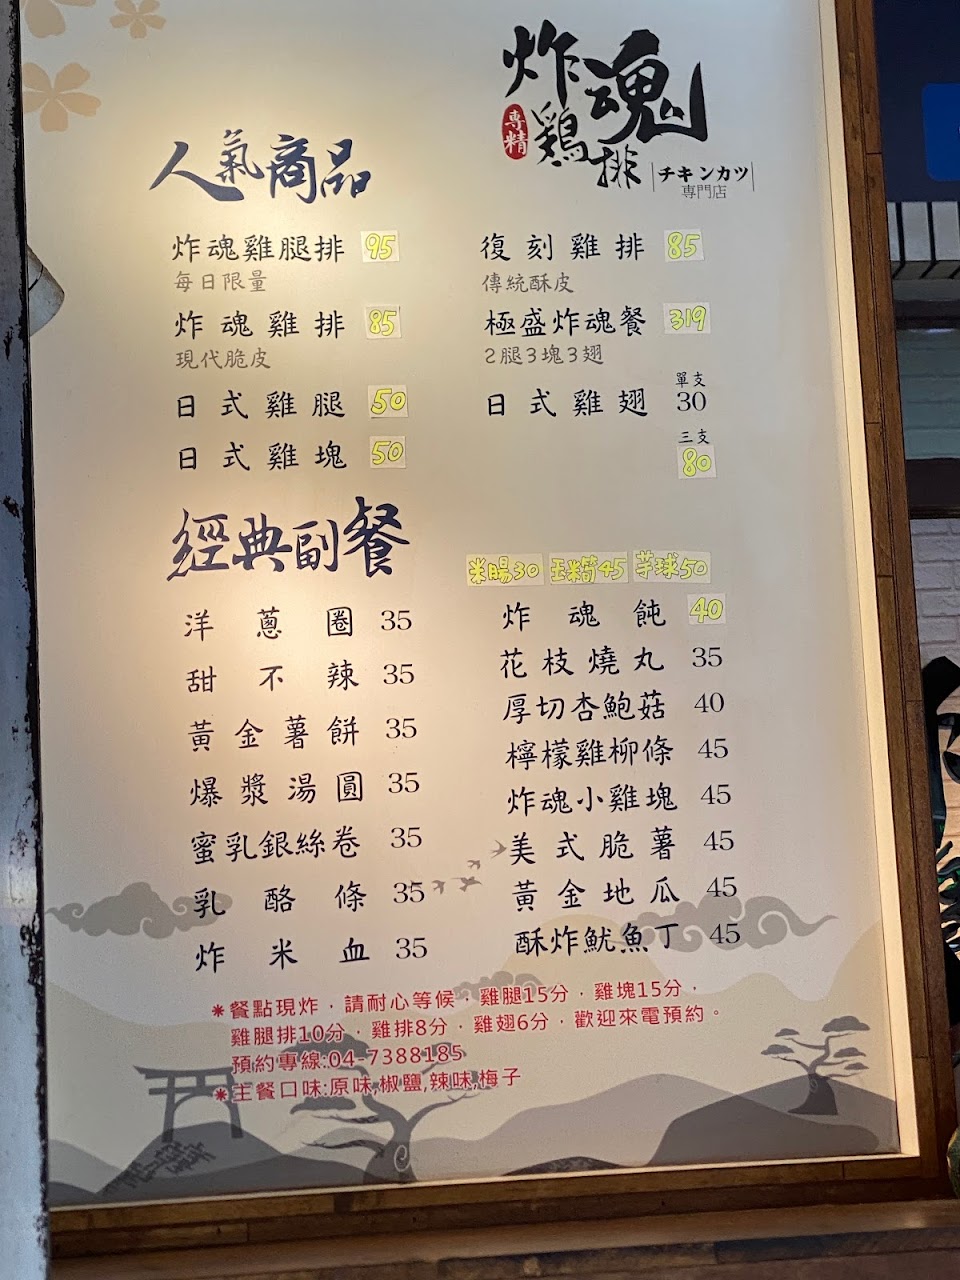 炸魂
專精
鷄排
チキンカツ
専門店
人氣商品
炸魂雞腿排 95
每日限量
炸魂雞排 85
現代脆皮
日式雞腿 50
日式雞塊 50
復刻雞排 85
傳統酥皮
極盛炸魂餐 319
2腿3塊3翅
單支
日式雞翅 30
三支
80
經典副餐
洋蔥圈 35
甜不辣 35
黃金薯餅 35
爆漿湯圓 35
蜜乳銀絲卷 35
乳酪條 35
炸米血 35
米腸30 玉米筍45 芋球50
炸魂飩 40
花枝燒丸 35
厚切杏鮑菇 40
檸檬雞柳條 45
炸魂小雞塊 45
美式脆薯 45
黃金地瓜 45
酥炸魷魚丁 45
*餐點現炸，請耐心等候，雞腿15分，雞塊15分，
雞腿排10分，雞排8分，雞翅6分，歡迎來電預約。
預約專線:04-7388185
*主餐口味:原味,椒鹽,辣味,梅子